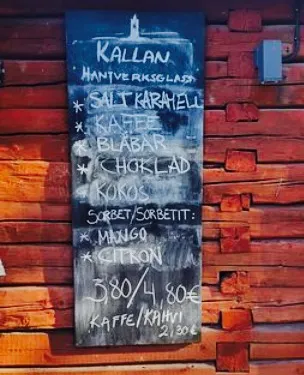 KALLAN
HANTVERKSGLASS
* SALT KARAMELL
* KAFFE
* BLÅBÄR
* CHOKLAD
* KOKOS
SORBET/SORBETIT:
* MANGO
* CITRON
3,80/4,80€
KAFFE/KAHVI
2,30€